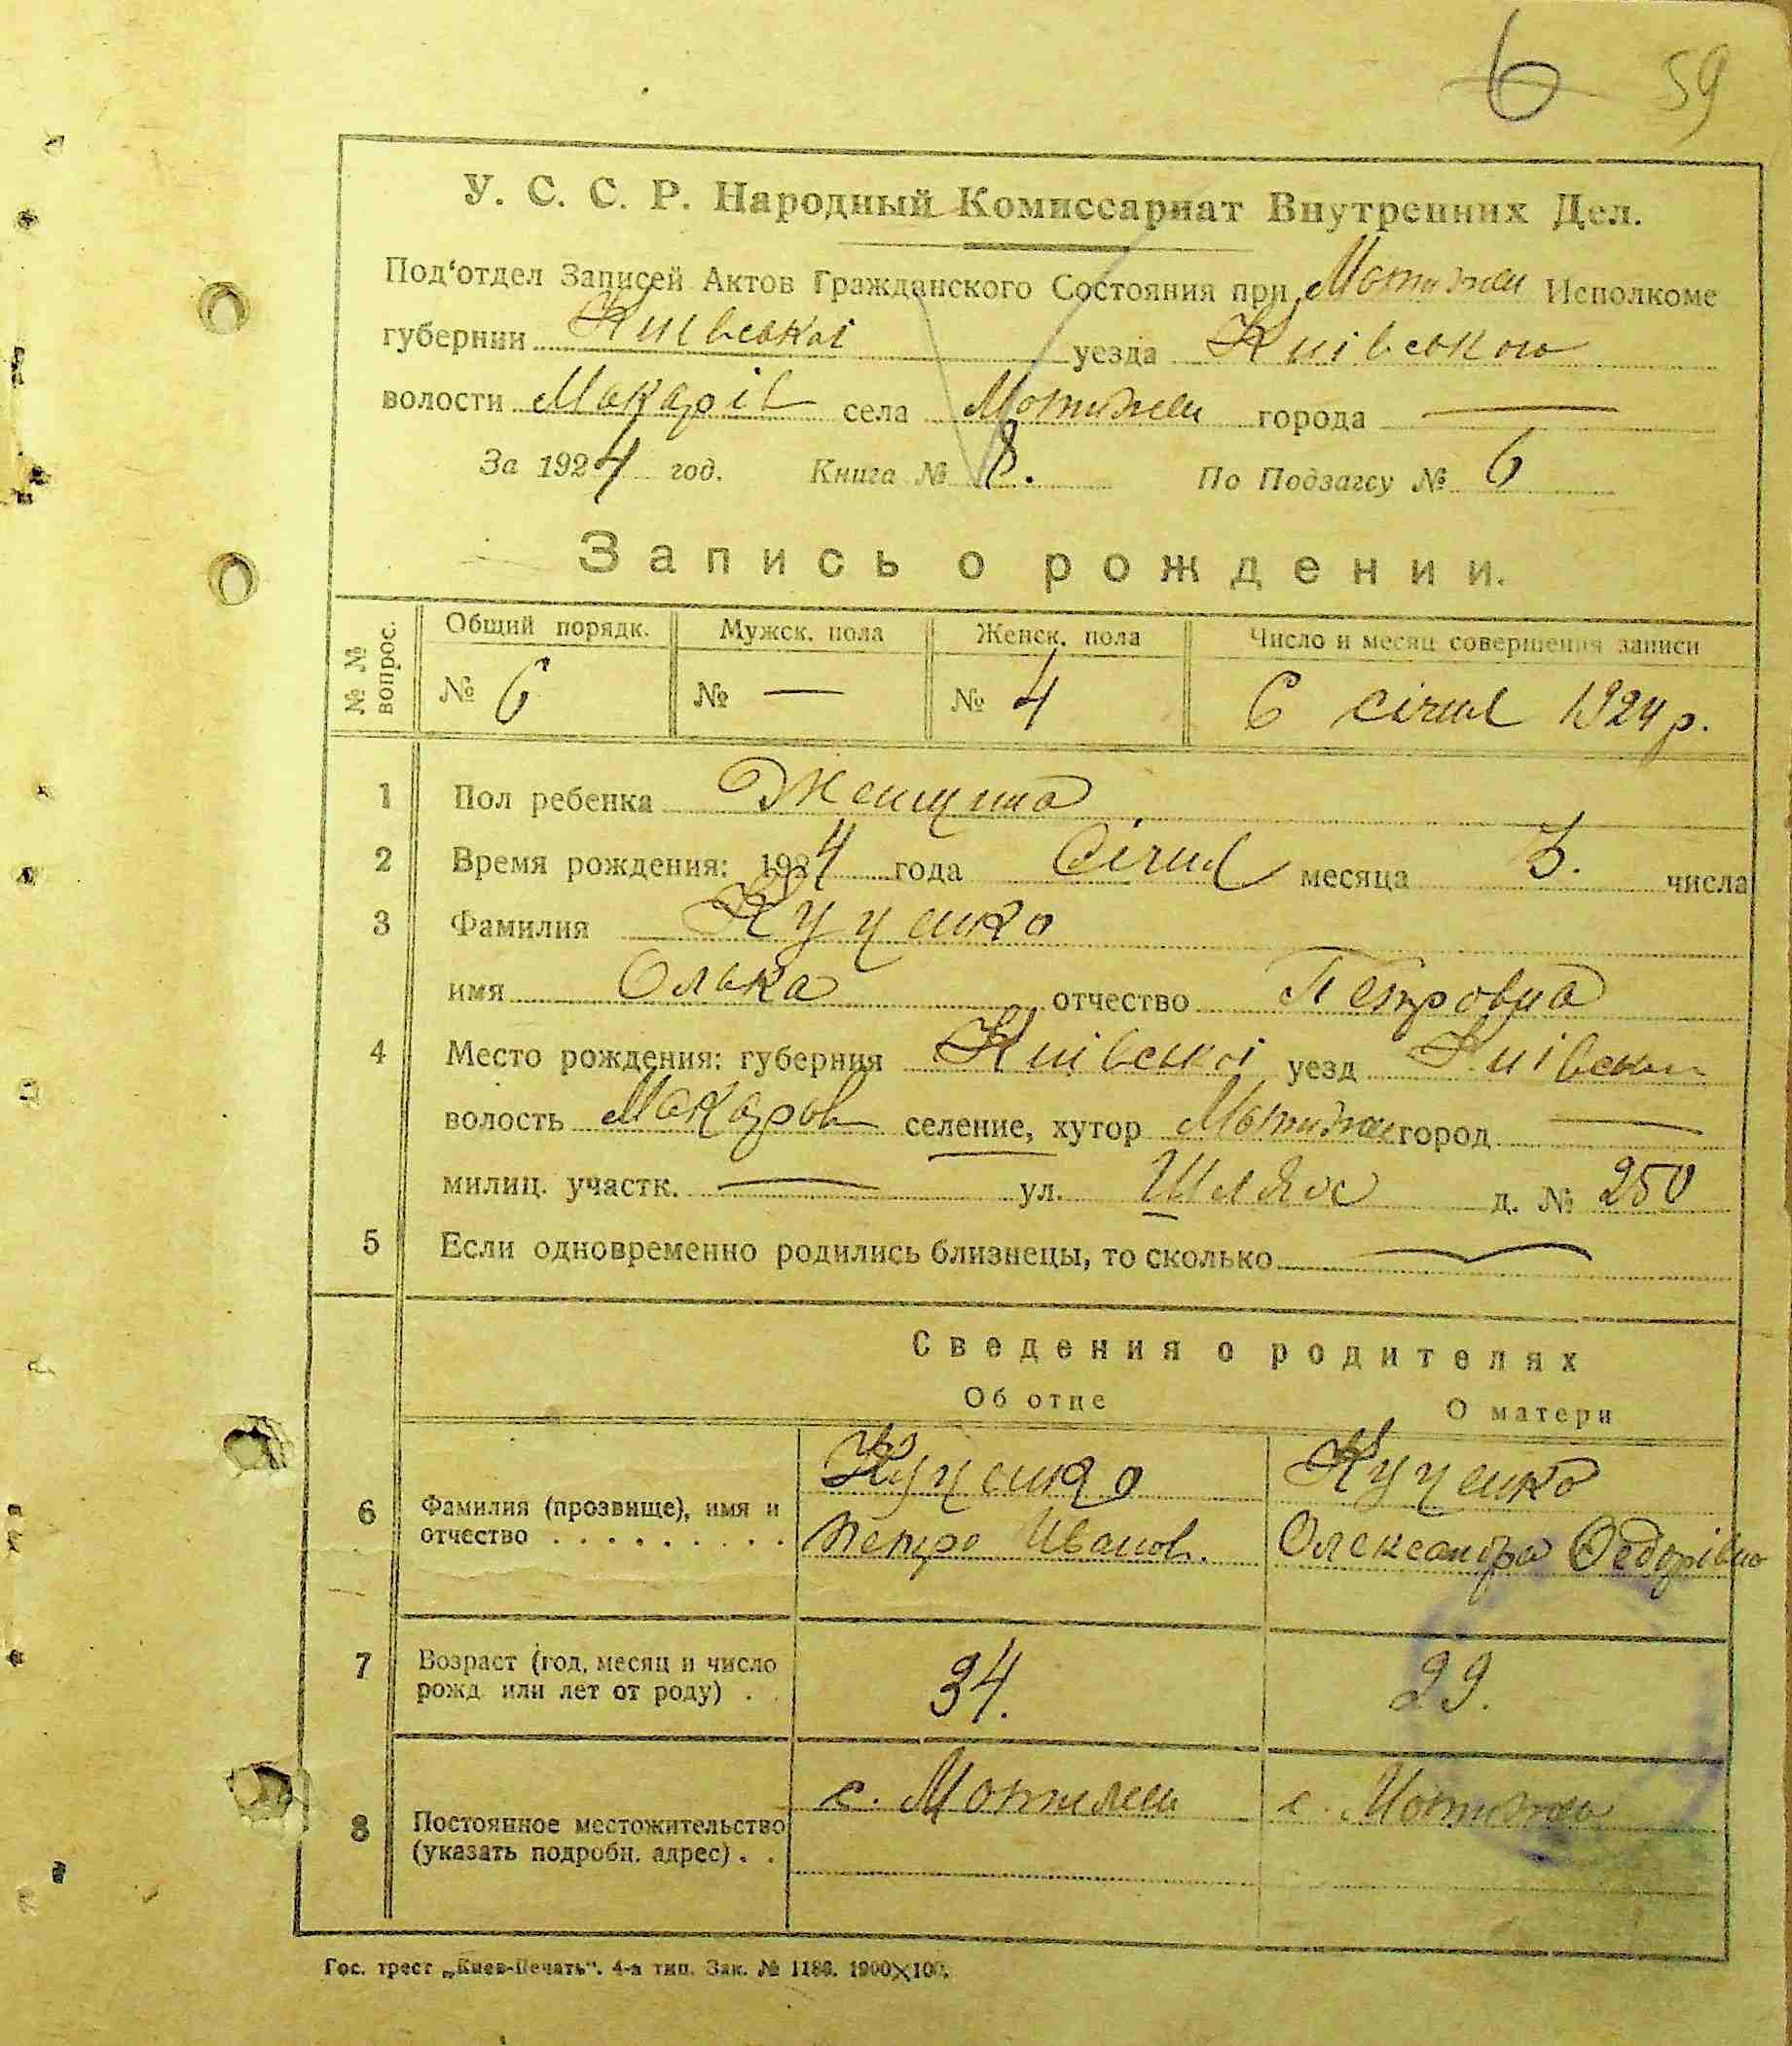 6 59
У. С. С. Р. Народный Комиссариат Внутренних Дел.
Под'отдел Записей Актов Гражданского Состояния при Мотижен Исполкоме
губернии Київськоі уезда Киівського
волости Макарів села Мотижен города —
За 1924 год. Книга № 8. По Подзагсу № 6
Запись о рождении.
№ № вопрос.
Общий порядк. Мужск. пола Женск. пола Число и месяц совершения записи
№ 6 № — № 4 6 січня 1924 р.
1 Пол ребенка Женщина
2 Время рождения: 1924 года Січня месяца 5. числа
3 Фамилия Куценко
имя Олька отчество Петровна
4 Место рождения: губерния Киівськоі уезд Киівськ
волость Макаров селение, хутор Мотижен город —
милиц. участк. — ул. Шлях д. № 250
5 Если одновременно родились близнецы, то сколько —
Сведения о родителях
Об отце О матери
Куценко Куценко
6 Фамилия (прозвище), имя и
отчество . . . . . . . . . Петро Иванов. Олександра Федорівна
7 Возраст (год, месяц и число
рожд. или лет от роду) . . 34. 29.
с. Мотижен с. Мотижен
8 Постоянное местожительство
(указать подробн. адрес) . .
Гос. трест „Киев-Печать“. 4-я тип. Зак. № 1186. 1900×100.